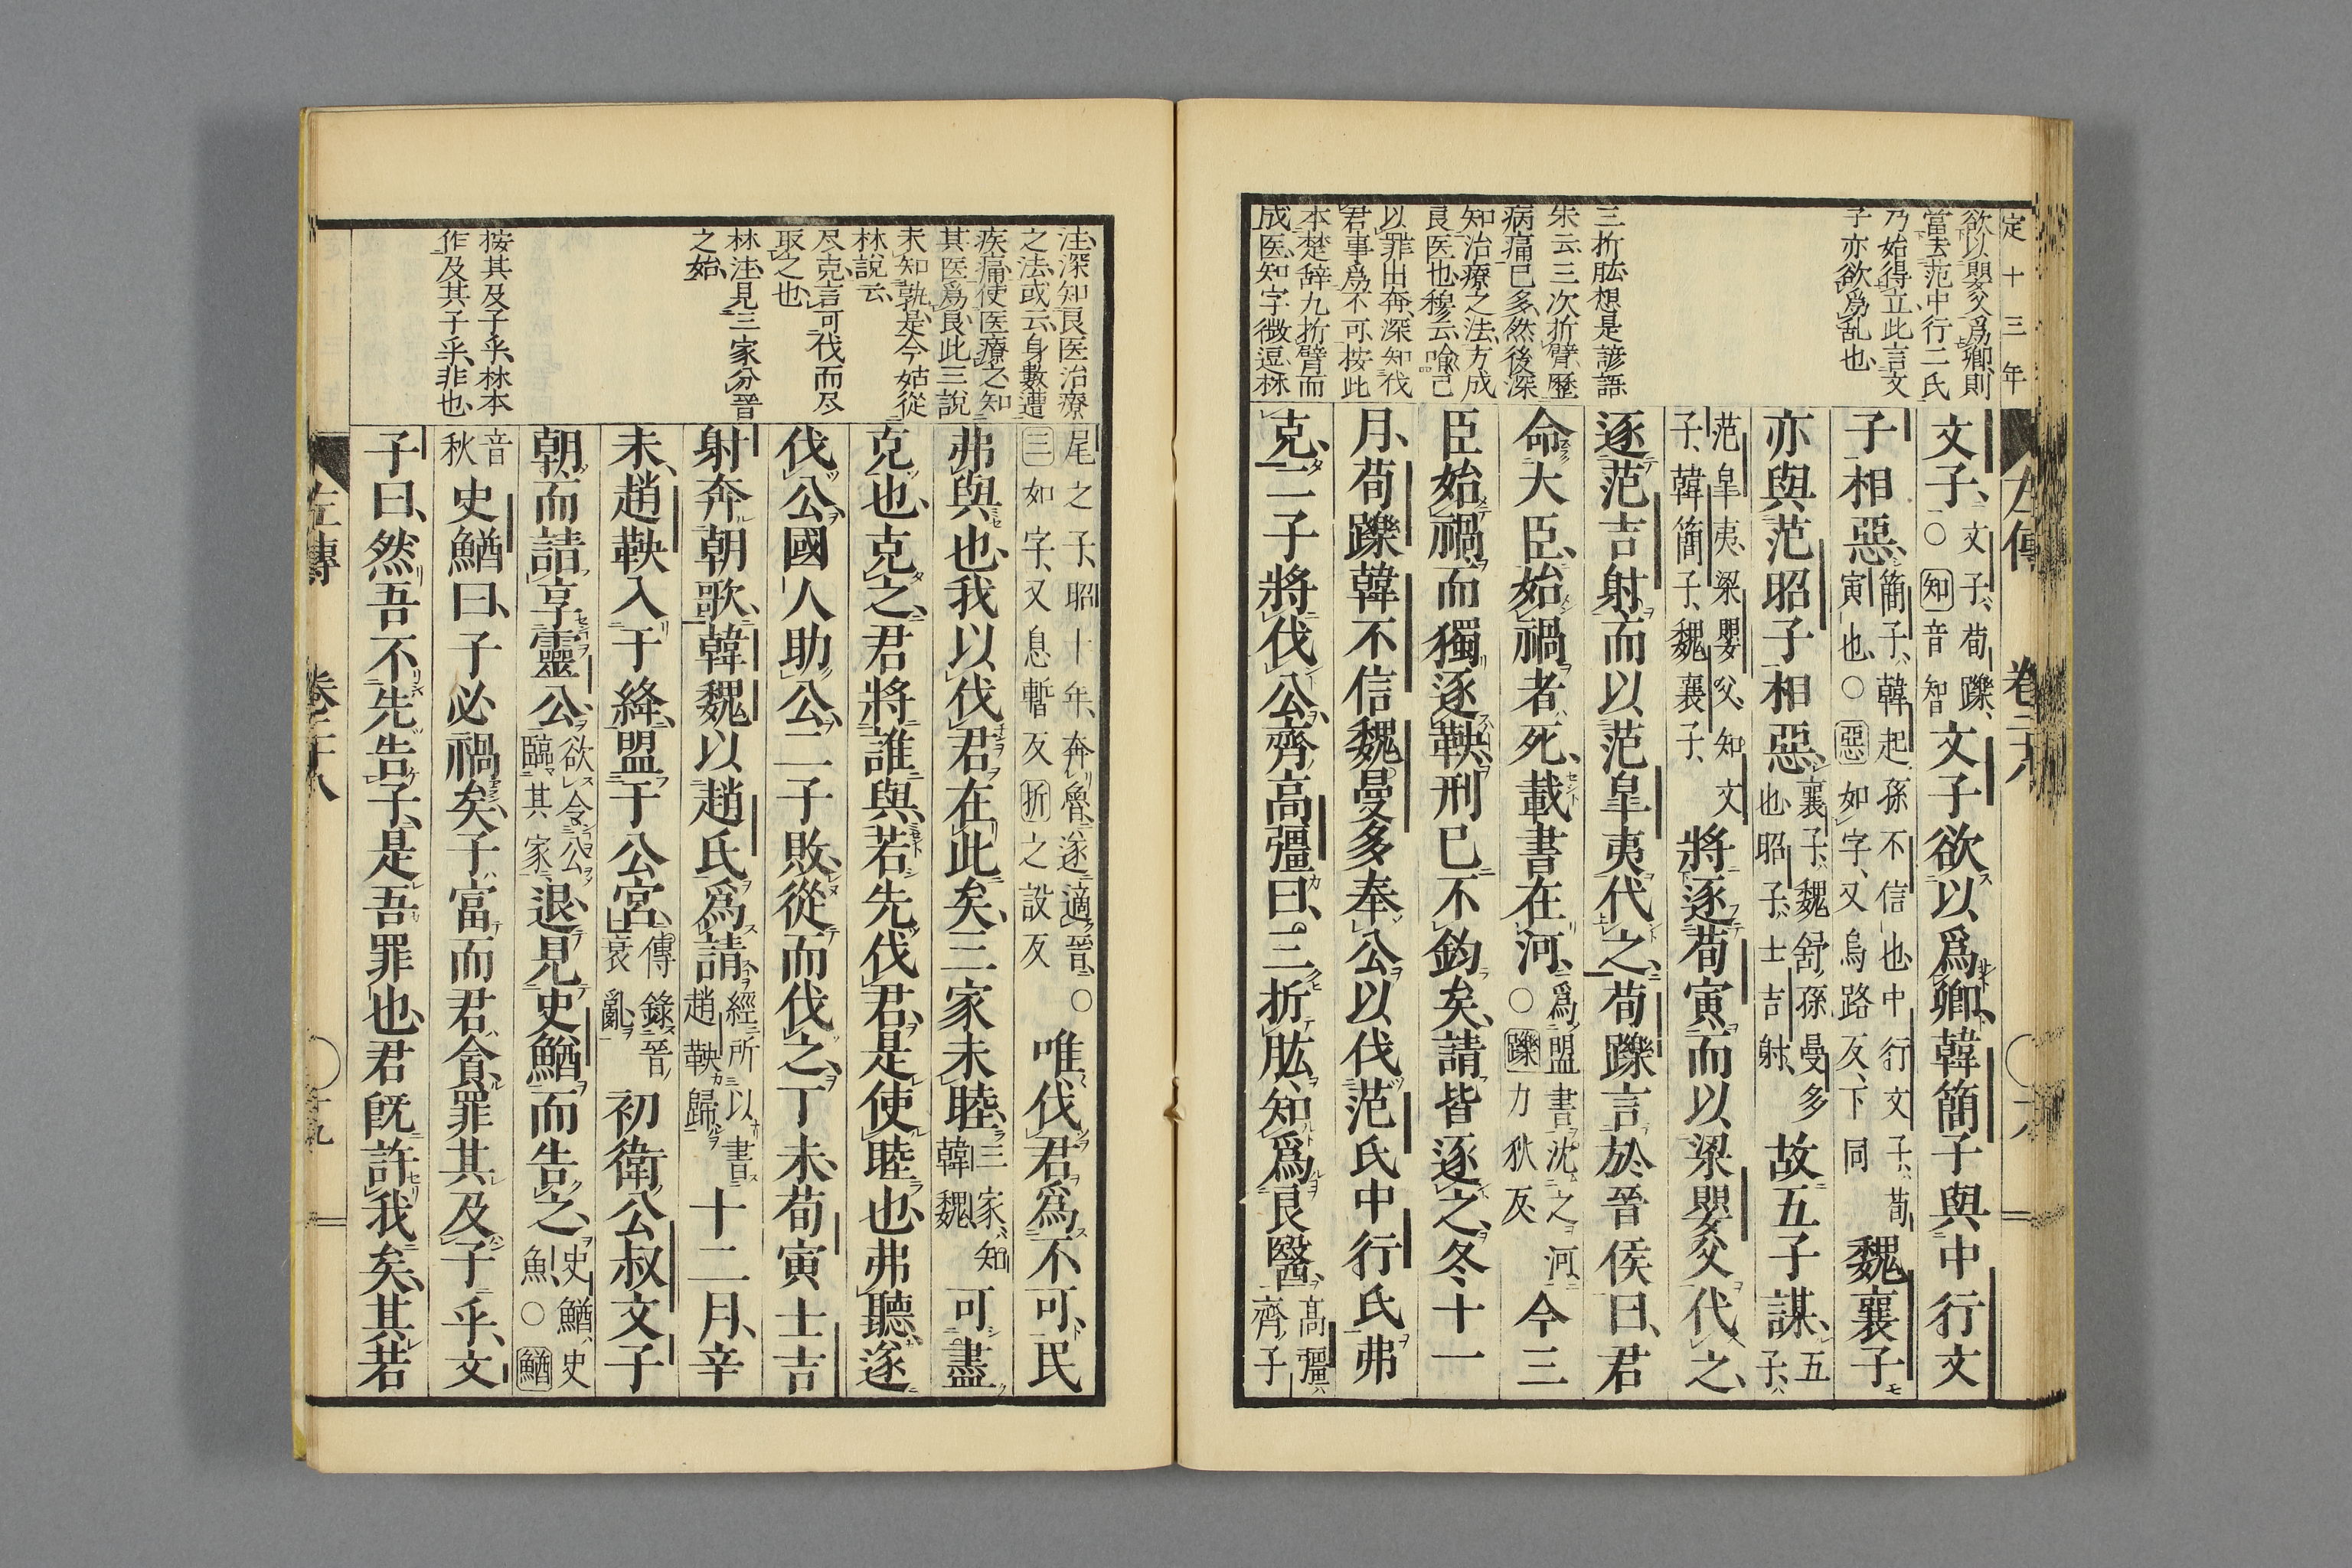 定十三年
欲以嬰父爲卿則
當去范中行二氏
乃始得立此言文
子亦欲爲乱也
三折肱想是諺語
朱云三次折臂歷
病痛已多然後深
知治療之法方成
良医也穆云喩己
以罪出奔深知伐
君事爲不可按此
本楚辞九折臂而
成医知字微逗林
左傳
文子文子荀躒○知音智文子欲以爲卿韓簡子與中行文
子相惡簡子韓起孫不信也中行文子荀寅也○惡如字又烏路反下同魏襄子
亦與范昭子相惡襄子魏舒孫曼多也昭子士吉射故五子謀五子
范皐夷梁嬰父知文子韓簡子魏襄子將逐荀寅而以梁嬰父代之
逐范吉射而以范皐夷代之荀躒言於晉侯曰君
命大臣始禍者死載書在河爲盟書沈之河○躒力狄反今三
臣始禍而獨逐鞅刑已不鈞矣請皆逐之冬十一
月荀躒韓不信魏曼多奉公以伐范氏中行氏弗
克二子將伐公齊高彊曰三折肱知爲良醫高彊齊子
注深知良医治療
之法或云身數遭
疾痛使医療之知
其医爲良此三說
未知孰是今姑從
林說云
尽克言可伐而尽
取之也
林注見三家分晉
之始
按其及子乎林本
作及其子乎非也
尾之子昭十年奔魯遂適晉○三如字又息暫反折之設反唯伐君爲不可民
弗與也我以伐君在此矣三家未睦三家知韓魏可盡
克也克之君將誰與若先伐君是使睦也弗聽遂
伐公國人助公二子敗從而伐之丁未荀寅士吉
射奔朝歌韓魏以趙氏爲請經所以書趙鞅歸十二月辛
未趙鞅入于絳盟于公宮傳錄晉衰亂初衛公叔文子
朝而請享靈公欲令公臨其家退見史鰌而告之史鰌史魚○鰌
音秋史鰌曰子必禍矣子富而君貪罪其及子乎文
子曰然吾不先告子是吾罪也君旣許我矣其若
左傳
卷二十八